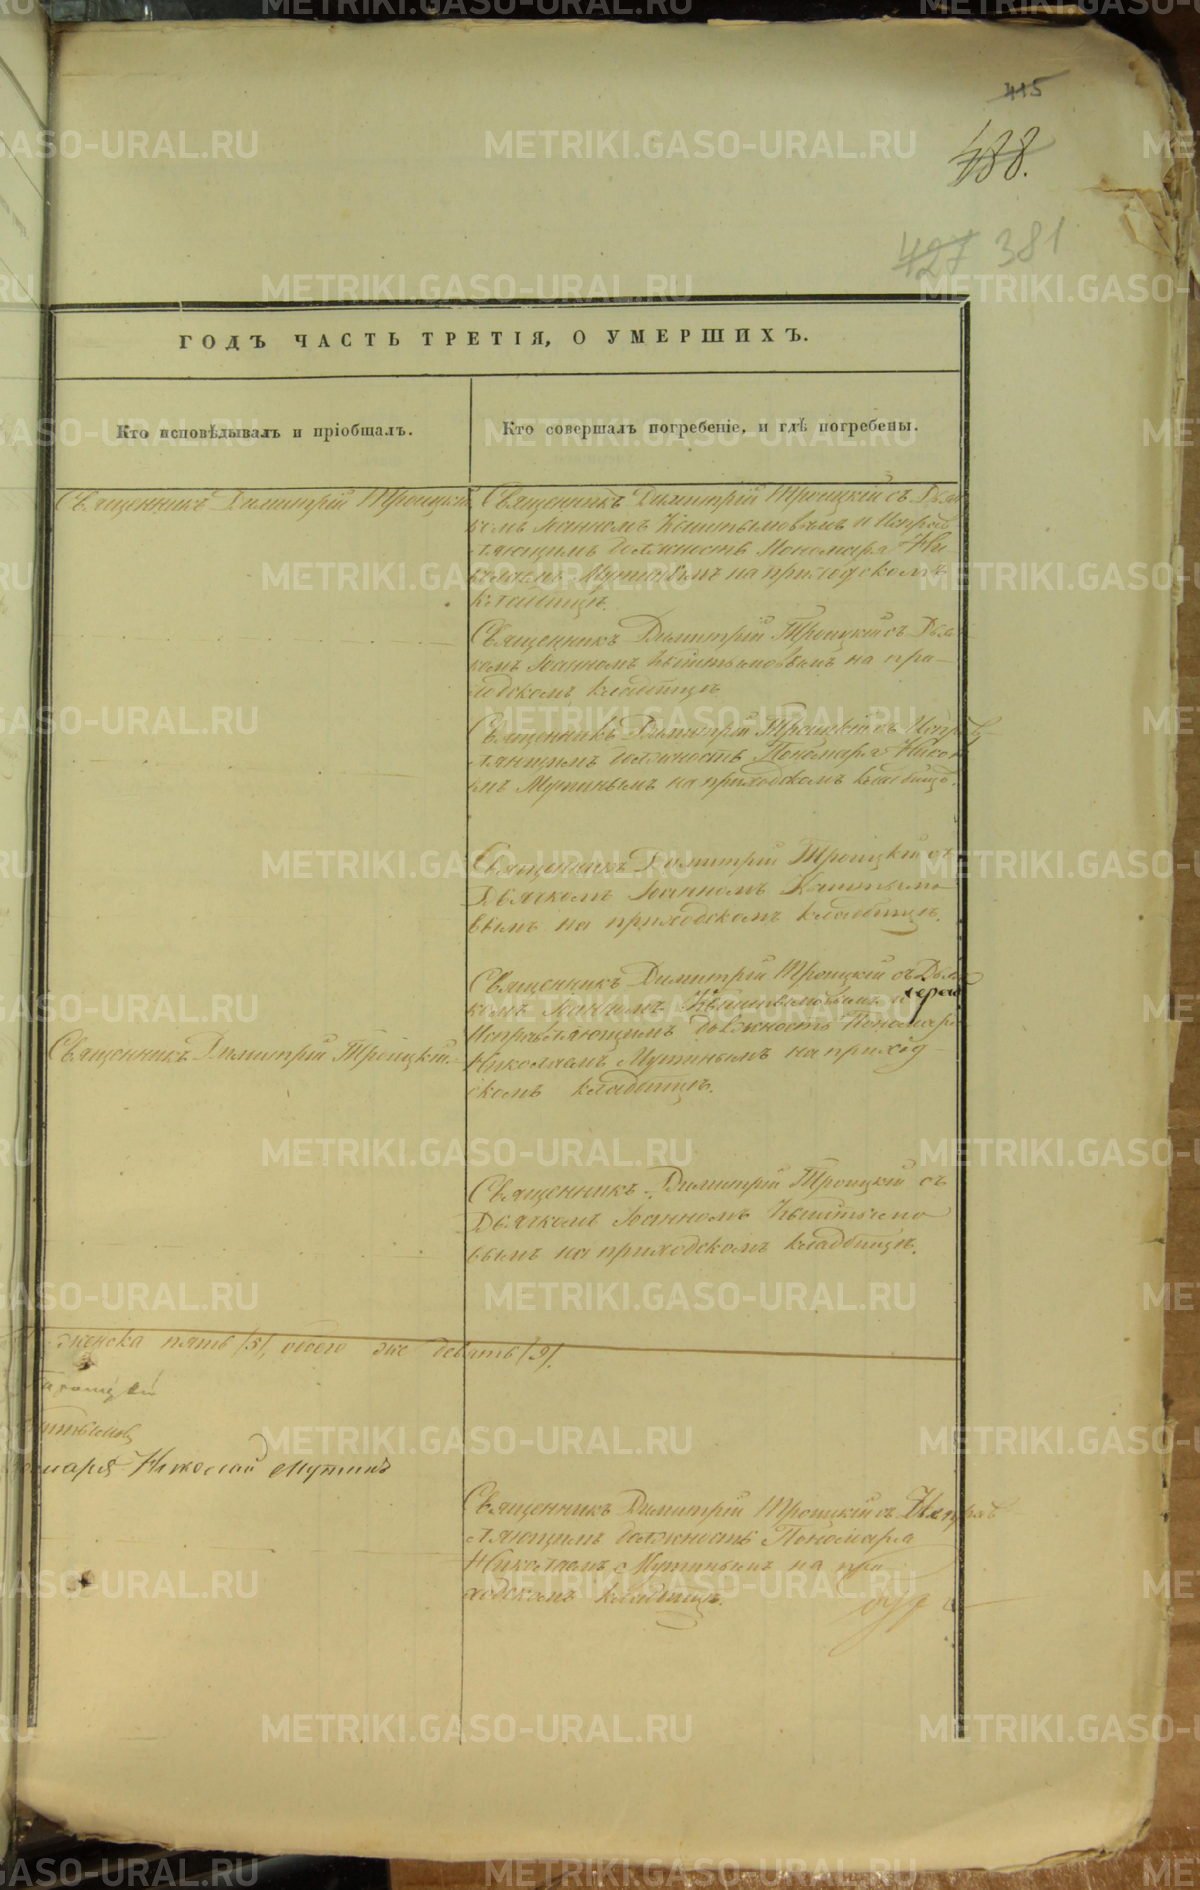 415
488.
427 381
ГОДЪ ЧАСТЬ ТРЕТІЯ, О УМЕРШИХЪ.
Кто исповѣдывалъ и пріобщалъ.
Кто совершалъ погребеніе, и гдѣ погребены.
Священникъ Димитрій Троицкій
Священникъ Димитрій Троицкій съ Дья
комъ Іоанномъ и Исправ
ляющимъ должность Пономаря Ни
колаемъ Мутинымъ на приходскомъ
кладбищѣ.
Священникъ Димитрій Троицкій съ Дьяч
комъ Іоанномъ на при-
ходскомъ кладбищѣ
Священникъ Димитрій Троицкій съ Исправ
ляющимъ должность Пономаря Никола
емъ Мутинымъ на приходскомъ кладбищѣ.
Священникъ Димитрій Троицкій съ
Дьячкомъ Іоанномъ
вымъ на приходскомъ кладбищѣ.
Священникъ Димитрій Троицкій съ Дьяч
комъ Іоанномъ и
Исправляющимъ должность Пономаря
Священникъ Димитрій Троицкій.
Николаемъ Мутинымъ на приход
скомъ кладбищѣ.
Священникъ Димитрій Троицкій съ
Дьячкомъ Іоанномъ
вымъ на приходскомъ кладбищѣ.
женска пять /5/, обоего же девять /9/.
Троицкій
номаря Николай Мутинъ
Священникъ Димитрій Троицкій съ Исправ
ляющимъ должность Пономаря
Николаемъ Мутинымъ на при
ходскомъ кладбищѣ.
METRIKI.GASO-URAL.RU